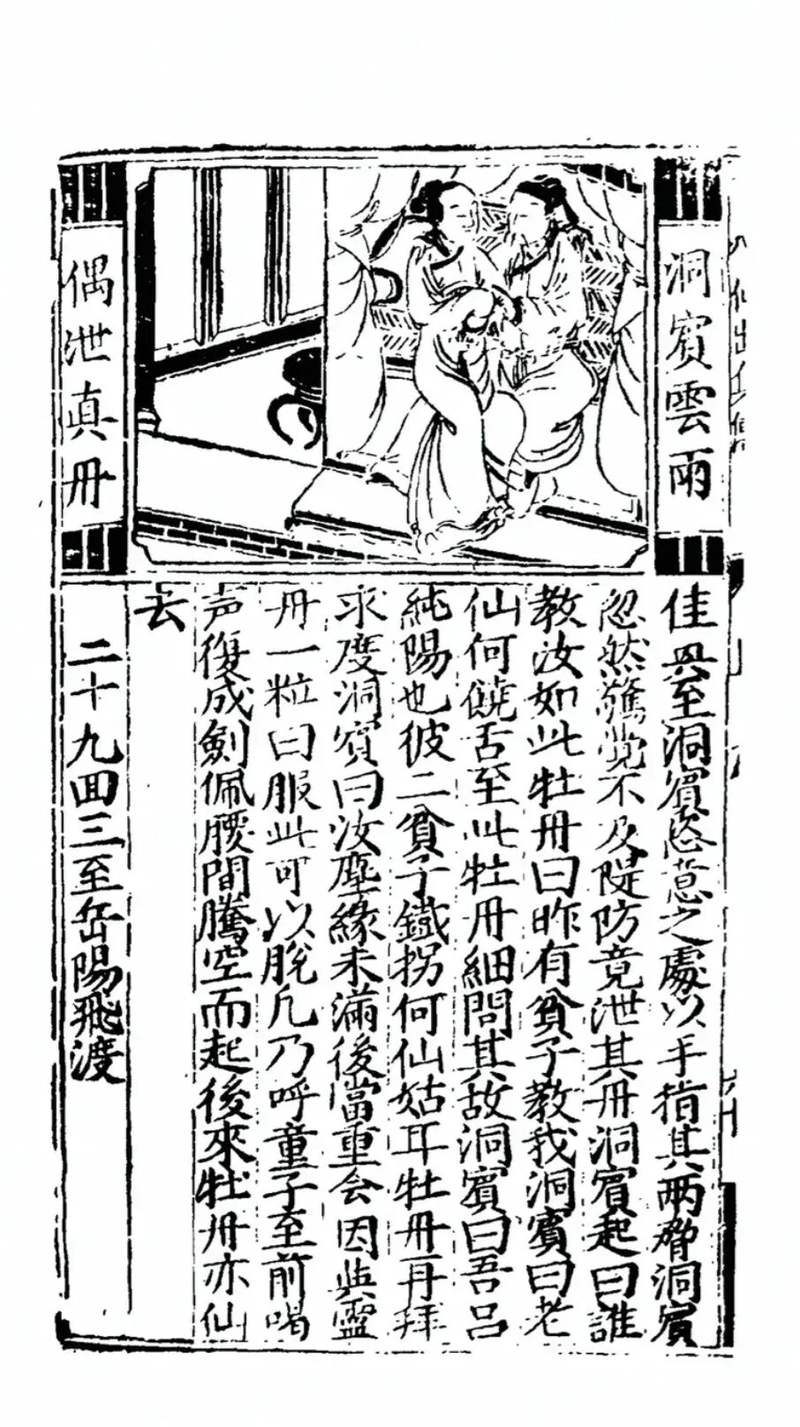 洞賔雲雨
偶泄真丹
佳興至洞賔恣意之處以手指其兩脅洞賔
忽然驚觉不及隄防竟泄其丹洞賔起曰誰
教汝如此牡丹曰昨有貧子教我洞賔曰老
仙何饒舌至此牡丹細問其故洞賔曰吾吕
純陽也彼二貧子鐵拐何仙姑耳牡丹再拜
求度洞賔曰汝塵緣未滿後當重会因與靈
丹一粒曰服此可以脫凡乃呼童子至前喝
声復成劍佩腰間騰空而起後來牡丹亦仙
去
二十九回三至岳陽飛渡